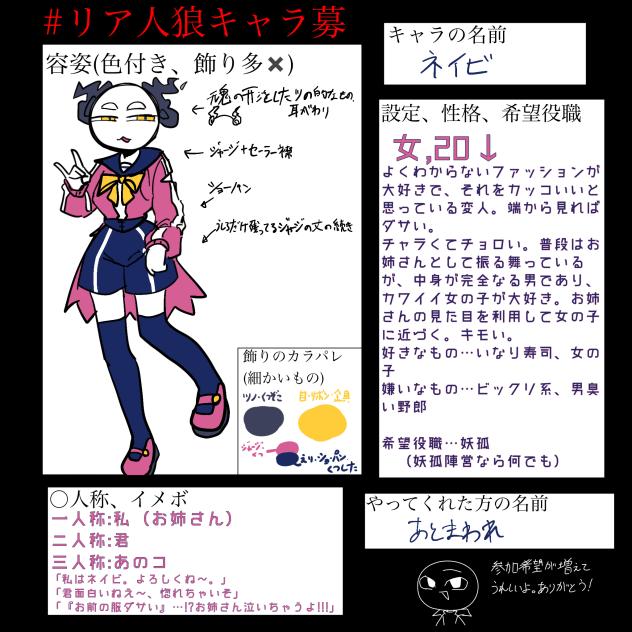 #リア人狼キャラ募
容姿(色付き、飾り多✖)
← 魂の形をしたツノ的なもの。
耳がわり
← ジャージ+セーラー襟
ショーパン
うしろだけ残ってるジャージの丈の続き
飾りのカラパレ
(細かいもの)
目・リボン・金具
ジャージ・
くつ
えり・ショーパン
くつした
キャラの名前
ネイビ
設定、性格、希望役職
女,20↓
よくわからないファッションが
大好きで、それをカッコいいと
思っている変人。端から見れば
ダサい。
チャラくてチョロい。普段はお
姉さんとして振る舞っている
が、中身が完全なる男であり、
カワイイ女の子が大好き。お姉
さんの見た目を利用して女の子
に近づく。キモい。
好きなもの…いなり寿司、女の
子
嫌いなもの…ビックリ系、男臭
い野郎
希望役職…妖狐
(妖狐陣営なら何でも)
〇人称、イメボ
一人称:私（お姉さん）
二人称:君
三人称:あのコ
「私はネイビ。よろしくね〜。」
「君面白いねえ〜、惚れちゃいそ」
「『お前の服ダサい』…!?お姉さん泣いちゃうよ!!!」
やってくれた方の名前
あとまわれ
参加希望が増えて
うれしいよ。ありがとう!